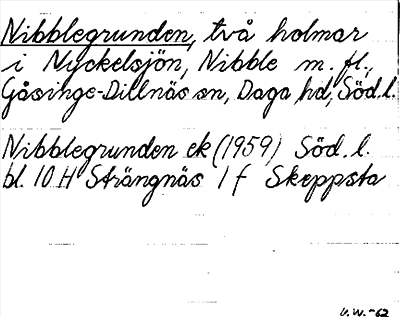 Nibblegrunden, två holmar
i Nyckelsjön, Nibble m. fl.,
Gåsinge-Dillnäs sn, Daga hd, Söd. l.
Nibblegrunden ek (1959) Söd. l.
bl. 10 H Strängnäs 1 f Skeppsta
V.W.-62